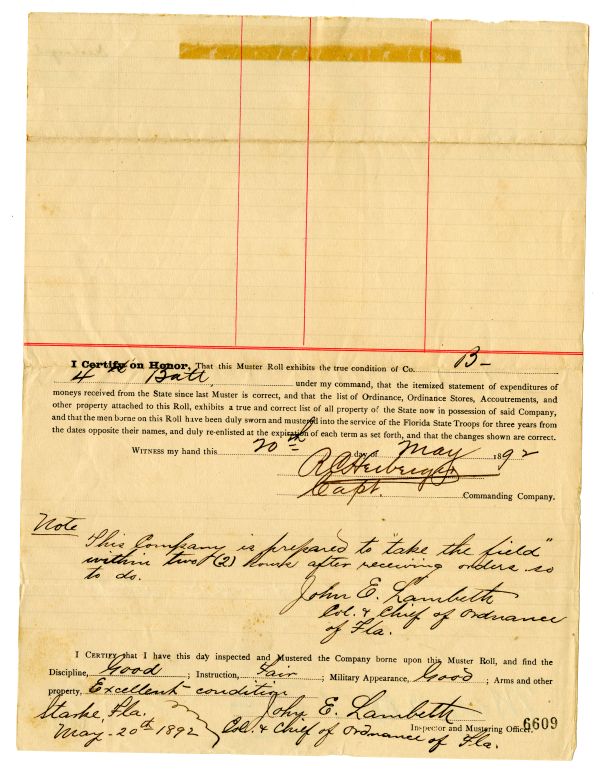 I Certify on Honor, That this Muster Roll exhibits the true condition of Co. B-
4th Batt, under my command, that the itemized statement of expenditures of
moneys received from the State since last Muster is correct, and that the list of Ordinance, Ordinance Stores, Accoutrements, and
other property attached to this Roll, exhibits a true and correct list of all property of the State now in possession of said Company,
and that the men borne on this Roll have been duly sworn and mustered into the service of the Florida State Troops for three years from
the dates opposite their names, and duly re-enlisted at the expiration of each term as set forth, and that the changes shown are correct.
Witness my hand this 20th day of May 1892
Capt. Commanding Company.
Note
This Company is prepared to "take the field"
within two (2) hours after receiving orders so
to do.
John E. Lambeth
Col. & Chief of Ordnance
of Fla.
I Certify that I have this day inspected and Mustered the Company borne upon this Muster Roll, and find the
Discipline, Good ; Instruction, Fair ; Military Appearance, Good ; Arms and other
property, Excellent condition
Starke, Fla. John E. Lambeth
May-20th 1892 Col. & Chief of Ordnance of Fla.
Inspector and Mustering Officer.
6609